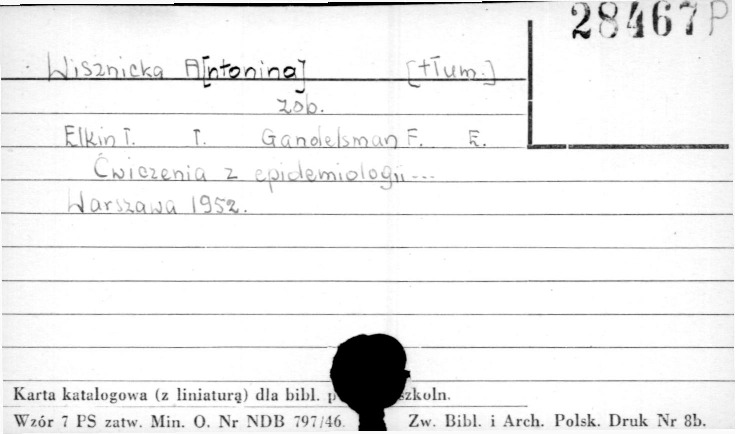 28467P
Wisznicka A[ntonina] [tłum.]
zob.
Elkin I. I. Gandelsman F. E.
Ćwiczenia z epidemiologii---
Warszawa 1952.
Karta katalogowa (z liniaturą) dla bibl. p szkoln.
Wzór 7 PS zatw. Min. O. Nr NDB 797/46. Zw. Bibl. i Arch. Polsk. Druk Nr 8b.